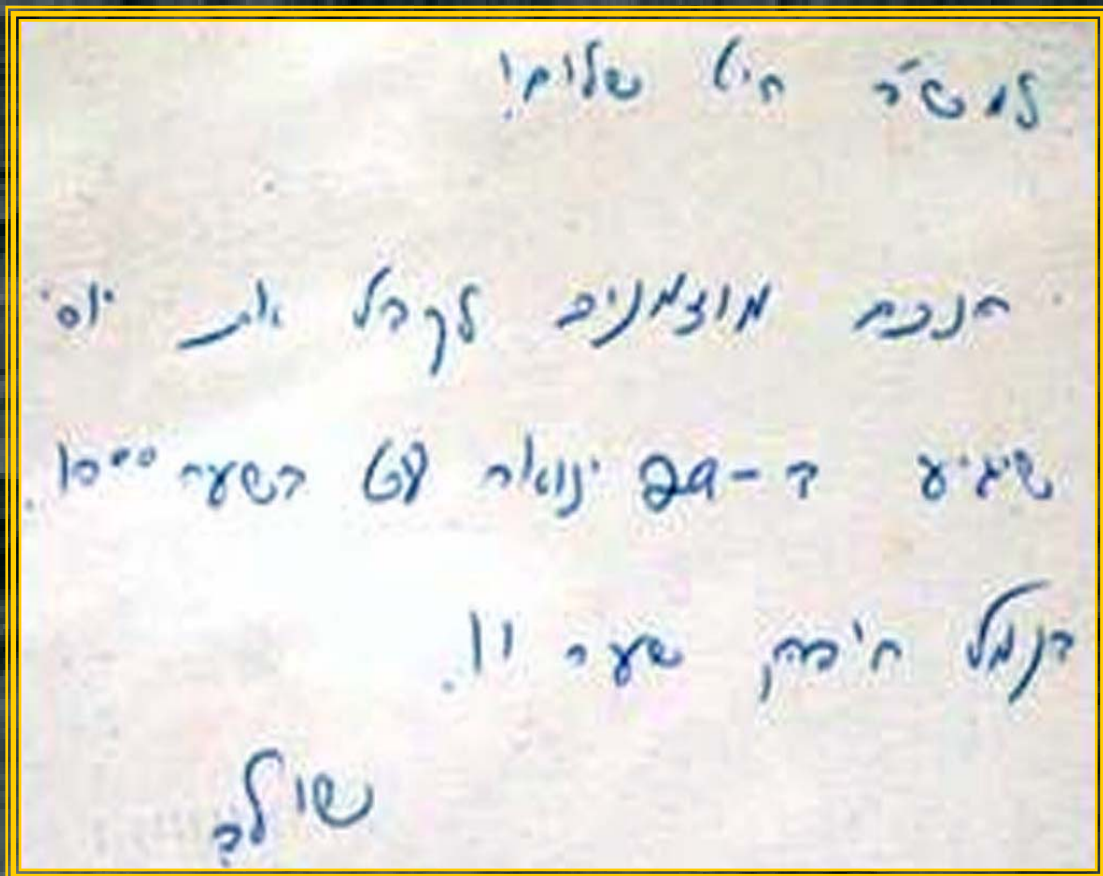 למש' שלום!
הנכם מוזמנים לקבל את יוסי
שיגיע ב-29 ינואר 68 בשעה 10⁰⁰
בנמל חיפה, שער 11.
שולה